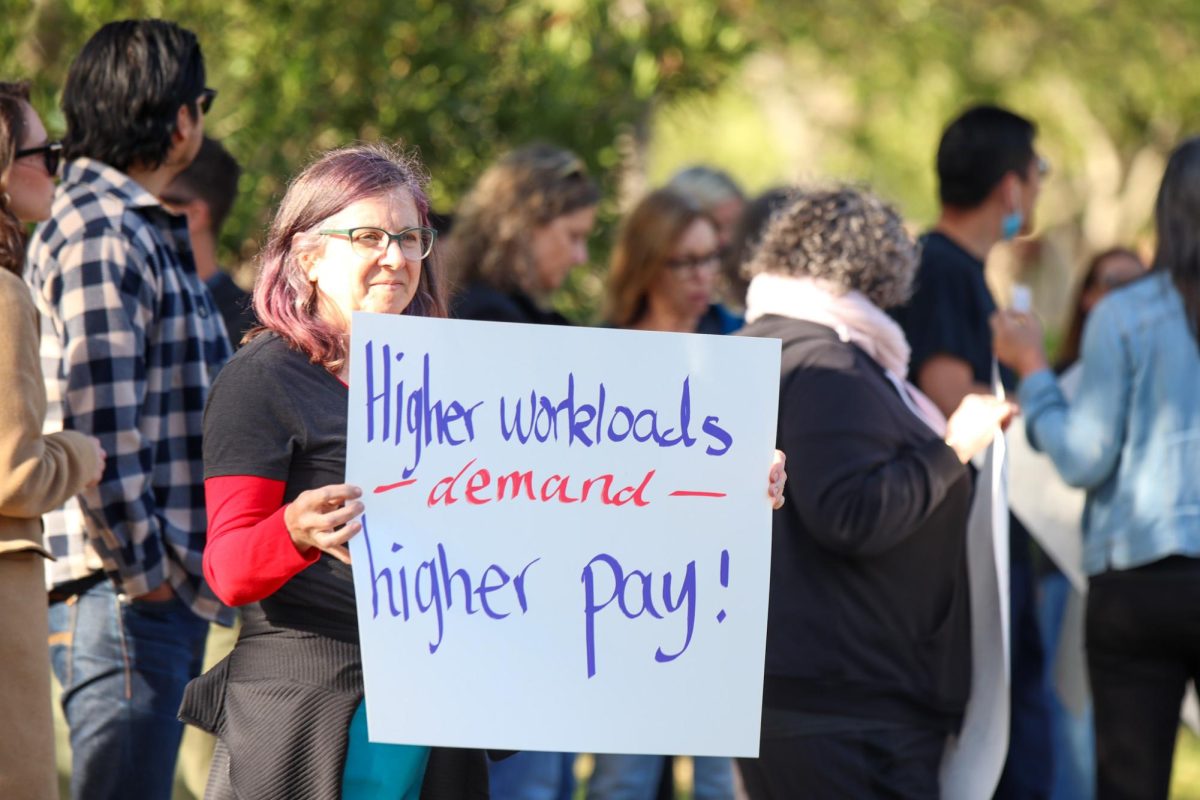 Higher workloads
- demand -
higher pay!